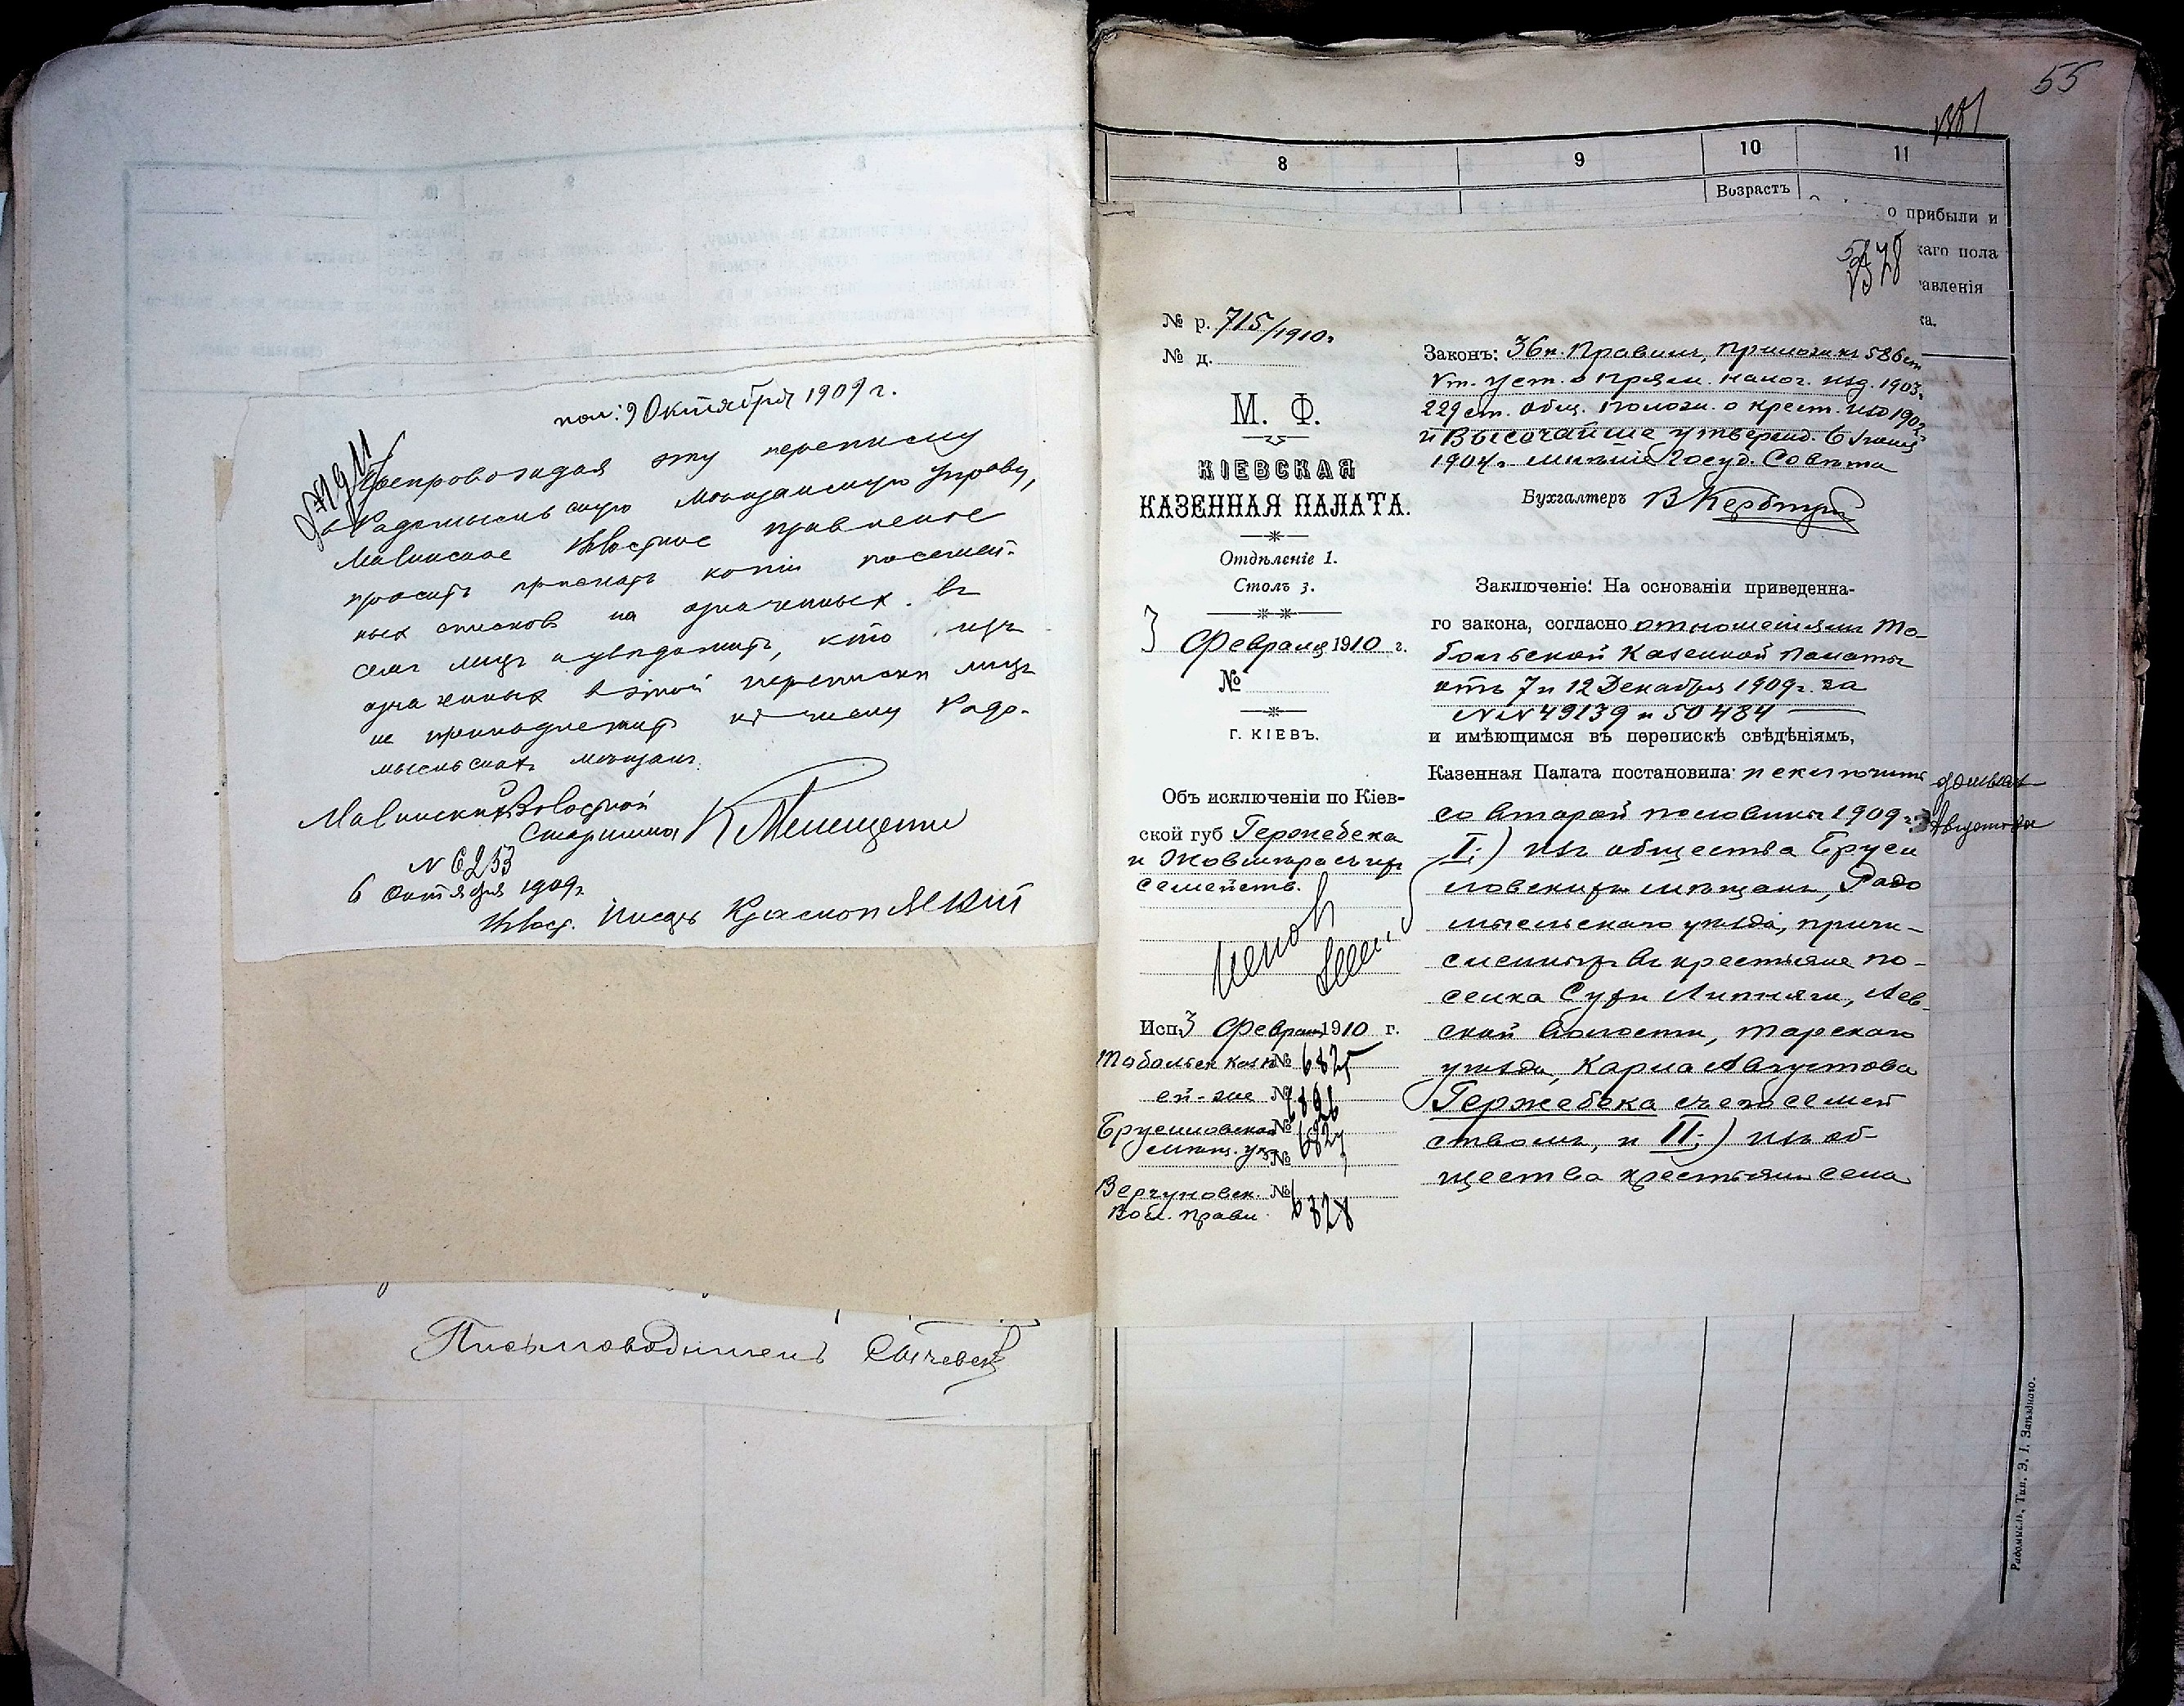 пол: 9 Октября 1909 г.
Препровождая эту переписку
в Радомысльскую мѣщанскую Управу,
Малинское Волостное правленіе
проситъ прислать копіи посемей-
ныхъ списковъ на означенныхъ въ
семъ лицъ и увѣдомить, кто изъ
означенныхъ въ этой перепискѣ лицъ
не принадлежитъ къ числу Радо-
мысльскихъ мѣщанъ.
Малинскій Волостной
Старшина
N 6253
6 Октября 1909 г.
Волос. Писарь
Письмоводитель
55
8
9
10
11
Возрастъ
о прибыли и
каго пола
авленія
ка.
№ р. 715/1910 г.
№ д.
М. Ф.
КІЕВСКАЯ
КАЗЕННАЯ ПАЛАТА.
Отдѣленіе 1.
Столъ 3.
3 Февраля 1910 г.
№
Г. КІЕВЪ.
Объ исключеніи по Кіев-
ской губ Гержебека
и
семействъ.
Исп. 3 Февраля 1910 г.
Тобольск. каз. п. № 6825
ей-же № 6826
Брусиловской № 6827
мѣщ. упр. №
Верчуновск. № 6828
Вол. правл.
Законъ: 36 п. Правилъ, прилож. къ 586 ст
V т. уст. о прям. налог. изд. 1903 г.
229 ст. общ. полож. о крест. изд 1902 г.
и Высочайше утвержд. 6 Іюня
1904 г. мнѣніе Госуд. Совѣта
Бухгалтеръ
Заключеніе: На основаніи приведенна-
го закона, согласно отношеніямъ То-
больской Казенной Палаты
отъ 7 и 12 Декабря 1909 г. за
NN 49139 и 50484
и имѣющимся въ перепискѣ свѣдѣніямъ,
Казенная Палата постановила: исключить
со второй половины 1909 г.
I.) изъ общества Бруси
ловскихъ мѣщанъ, Радо
мысльскаго уѣзда, причи-
сленныхъ въ крестьяне по-
селка Сухи Липняги,
ской волости, Тарскаго
уѣзда, Карла Августова
Гержебека съ его семей
ствомъ, и II.) изъ об-
щества крестьянъ села
Радомысль, Тип. Э. І.